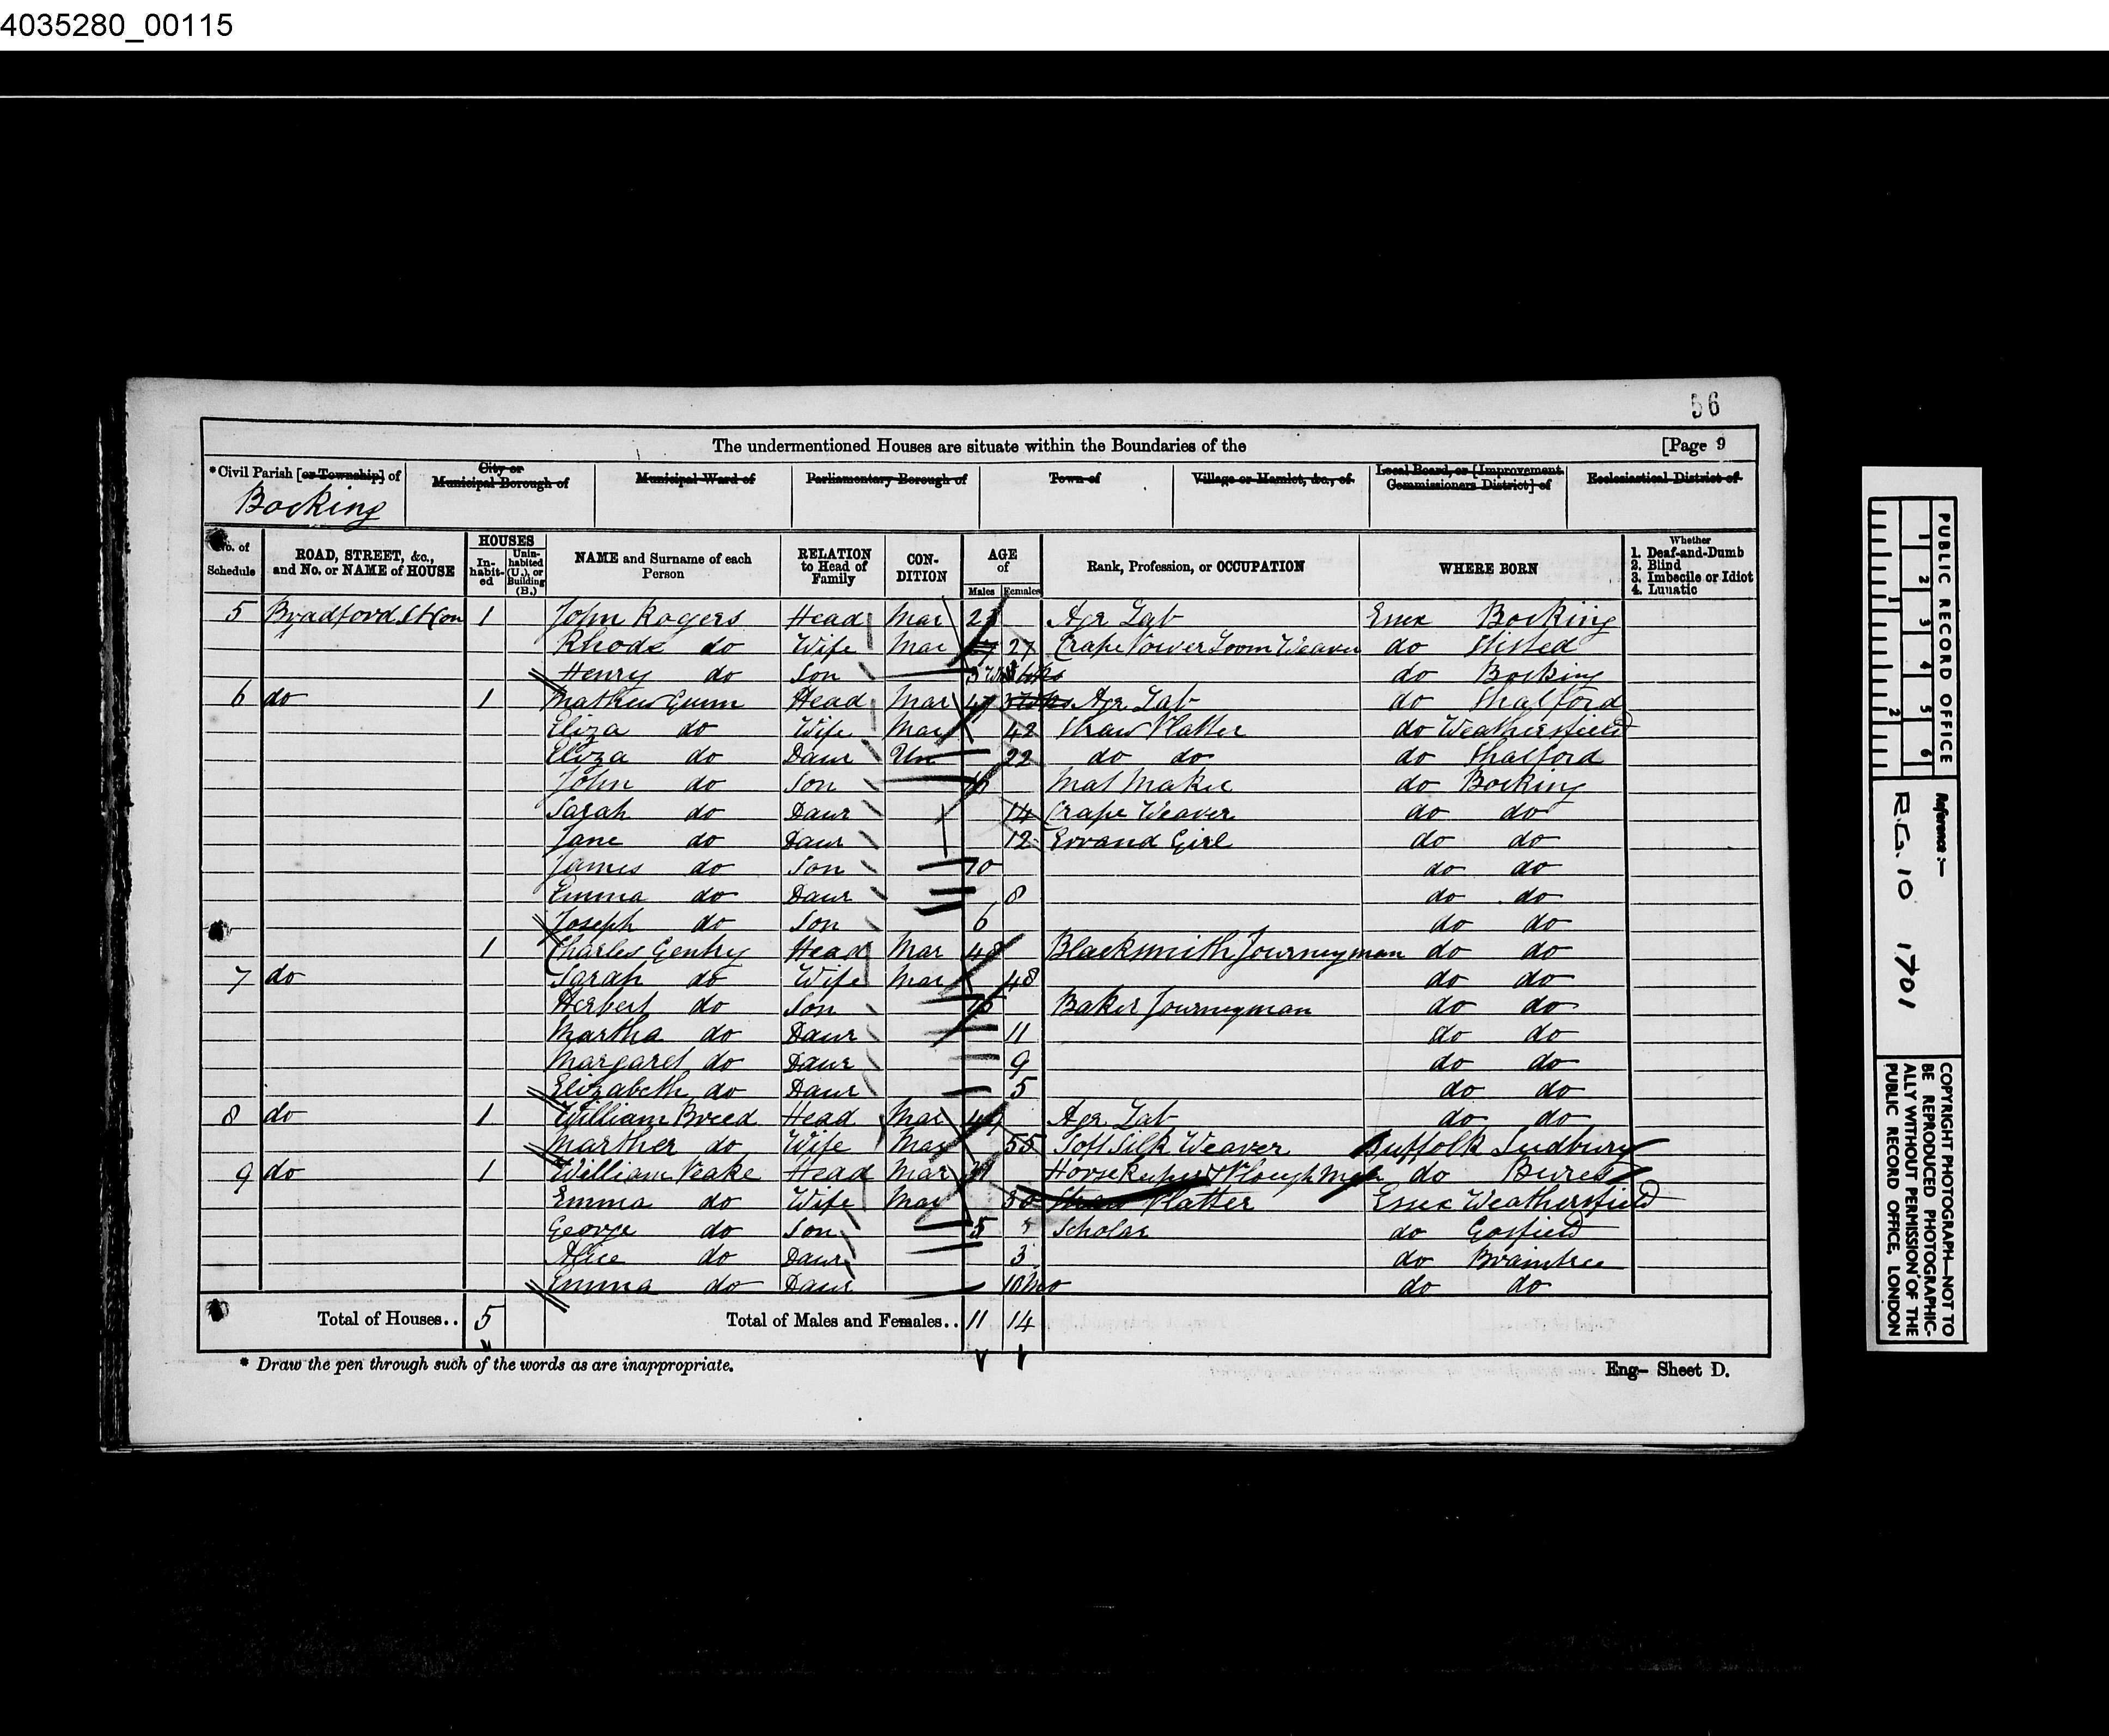 4035280_00115
56
The undermentioned Houses are situate within the Boundaries of the [Page 9
*Civil Parish [or Township] of City or Municipal Borough of Municipal Ward of Parliamentary Borough of Town of Village or Hamlet, &c., of Local Board, or [Improvement Commissioners District] of Ecclesiastical District of
Bocking
No. of Schedule ROAD, STREET, &c., and No. or NAME of HOUSE HOUSES Inhabited Uninhabited (U.), or Building (B.) NAME and Surname of each Person RELATION to Head of Family CONDITION AGE of Males Females Rank, Profession, or OCCUPATION WHERE BORN Whether 1. Deaf-and-Dumb 2. Blind 3. Imbecile or Idiot 4. Lunatic
5 Bradford St Con 1 John Rogers Head Mar Agr Lab Essex Bocking
Rhoda do Wife Mar 27 Crape Power Loom Weaver do Stisted
Henry do Son do Bocking
6 do 1 Mathew Gunn Head Mar 47 Agr Lab do Shalford
Eliza do Wife Mar 42 Straw Platter do Weathersfield
Eliza do Daur Un 22 do do do Shalford
John do Son Mat Maker do Bocking
Sarah do Daur 14 Crape Weaver do do
Jane do Daur 12 Errand Girl do do
James do Son 10 do do
Emma do Daur 8 do do
Joseph do Son 6 do do
1 Charles Gentry Head Mar 48 Blacksmith Journeyman do do
7 do Sarah do Wife Mar 48 do do
Herbert do Son Baker Journeyman do do
Martha do Daur 11 do do
Margaret do Daur 9 do do
Elizabeth do Daur 5 do do
8 do 1 William Breed Head Mar Agr Lab do do
Marther do Wife Mar 55 Soft Silk Weaver Suffolk Sudbury
9 do 1 William Peake Head Mar Horse Keeper & Plough Man do Bures
Emma do Wife Mar 30 Straw Platter Essex Weathersfield
George do Son 5 Scholar do Gosfield
Alice do Daur 3 do Braintree
Emma do Daur 10 Mo do do
Total of Houses.. 5 Total of Males and Females.. 11 14
* Draw the pen through such of the words as are inappropriate. Eng— Sheet D.
PUBLIC RECORD OFFICE
1 2 3 4 5 6
1 2
Reference:—
R.G. 10 1701
COPYRIGHT PHOTOGRAPH—NOT TO
BE REPRODUCED PHOTOGRAPHIC-
ALLY WITHOUT PERMISSION OF THE
PUBLIC RECORD OFFICE, LONDON